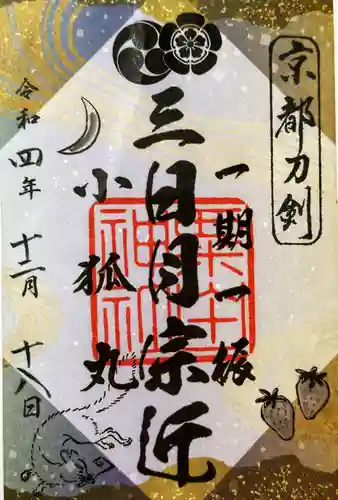 京都刀剣
一期一振
三日月宗近
小狐丸
令和四年 十二月 十八日
粟田神社